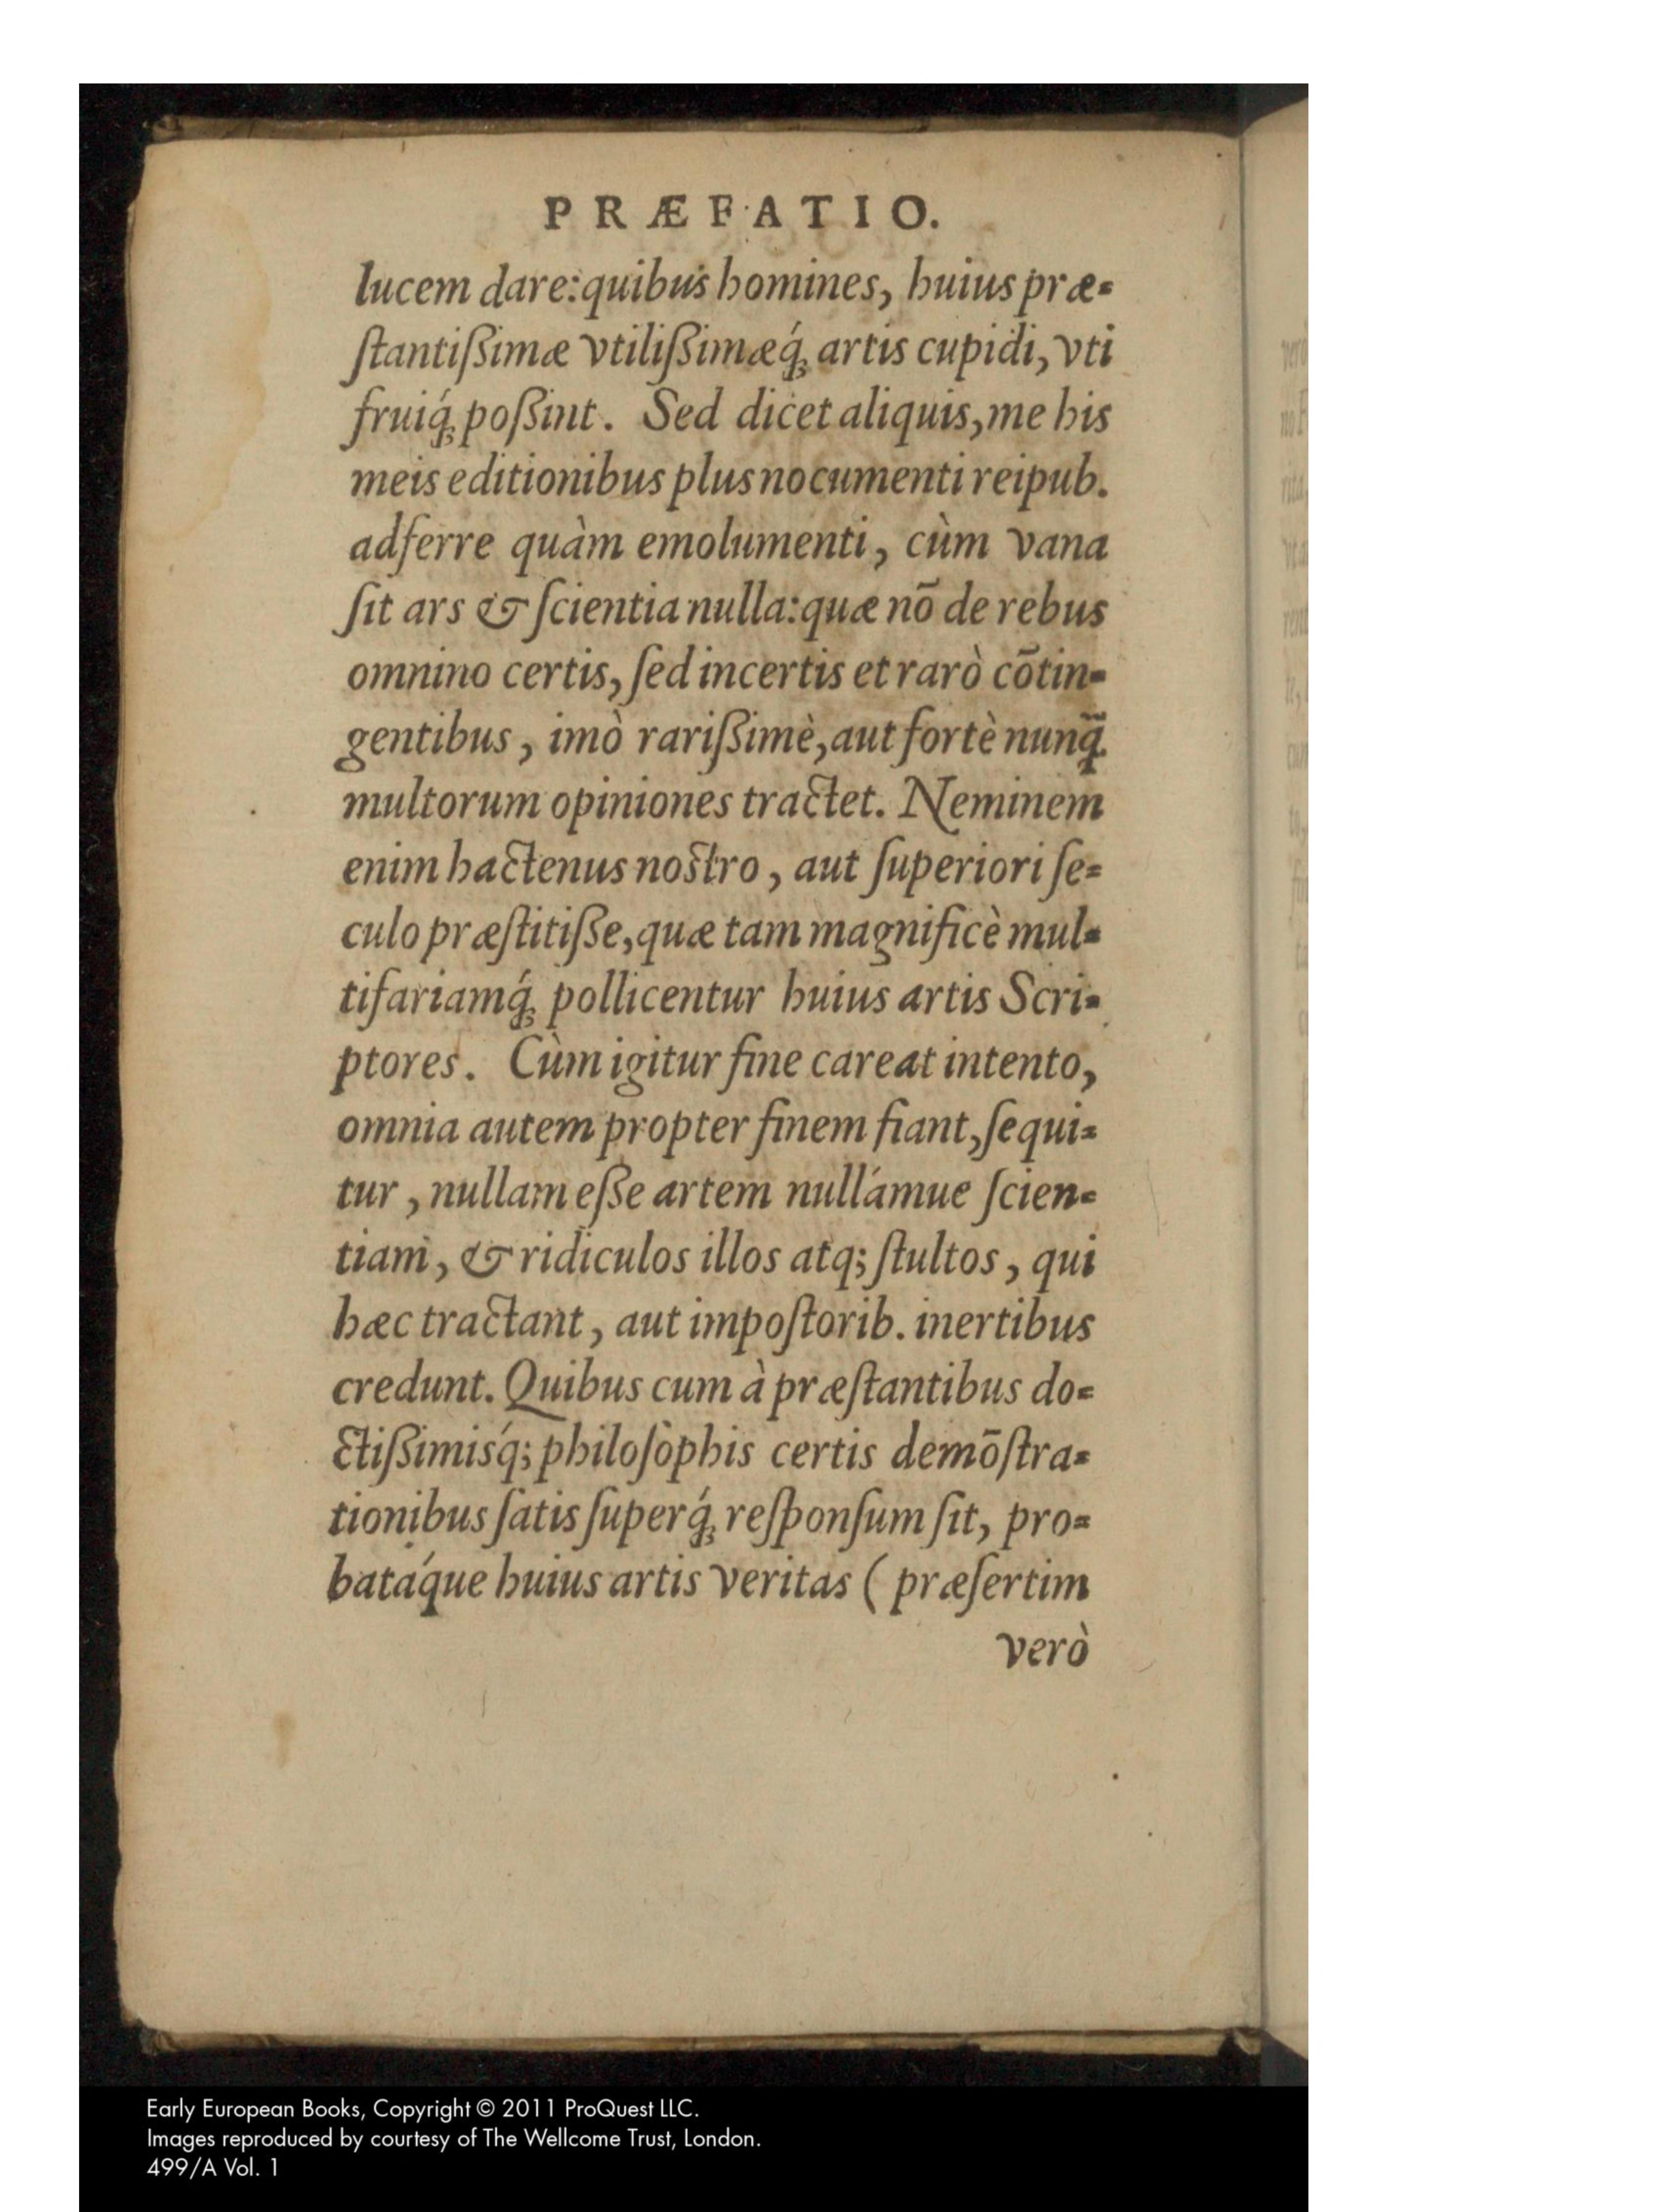 PRÆFATIO.
lucem dare: quibus homines, huius præ-
ſtantißimæ vtilißimæq́ꝫ artis cupidi, vti
fruiq́ꝫ poßint. Sed dicet aliquis, me his
meis editionibus plus nocumenti reipub.
adferre quàm emolumenti, cùm vana
ſit ars & ſcientia nulla: quæ nō de rebus
omnino certis, ſed incertis et rarò cōtin-
gentibus, imò rarißimè, aut fortè nunq̃.
multorum opiniones tractet. Neminem
enim hactenus noſtro, aut ſuperiori ſe-
culo præſtitiße, quæ tam magnificè mul-
tifariamq́ꝫ pollicentur huius artis Scri-
ptores. Cùm igitur fine careat intento,
omnia autem propter finem fiant, ſequi-
tur, nullam eße artem nullámue ſcien-
tiam, & ridiculos illos atq; ſtultos, qui
hæc tractant, aut impoſtorib. inertibus
credunt. Quibus cum à præſtantibus do-
ctißimisq́; philoſophis certis demōſtra-
tionibus ſatis ſuperq́ꝫ reſponſum ſit, pro-
batáque huius artis veritas (præſertim
verò
Early European Books, Copyright © 2011 ProQuest LLC.
Images reproduced by courtesy of The Wellcome Trust, London.
499/A Vol. 1